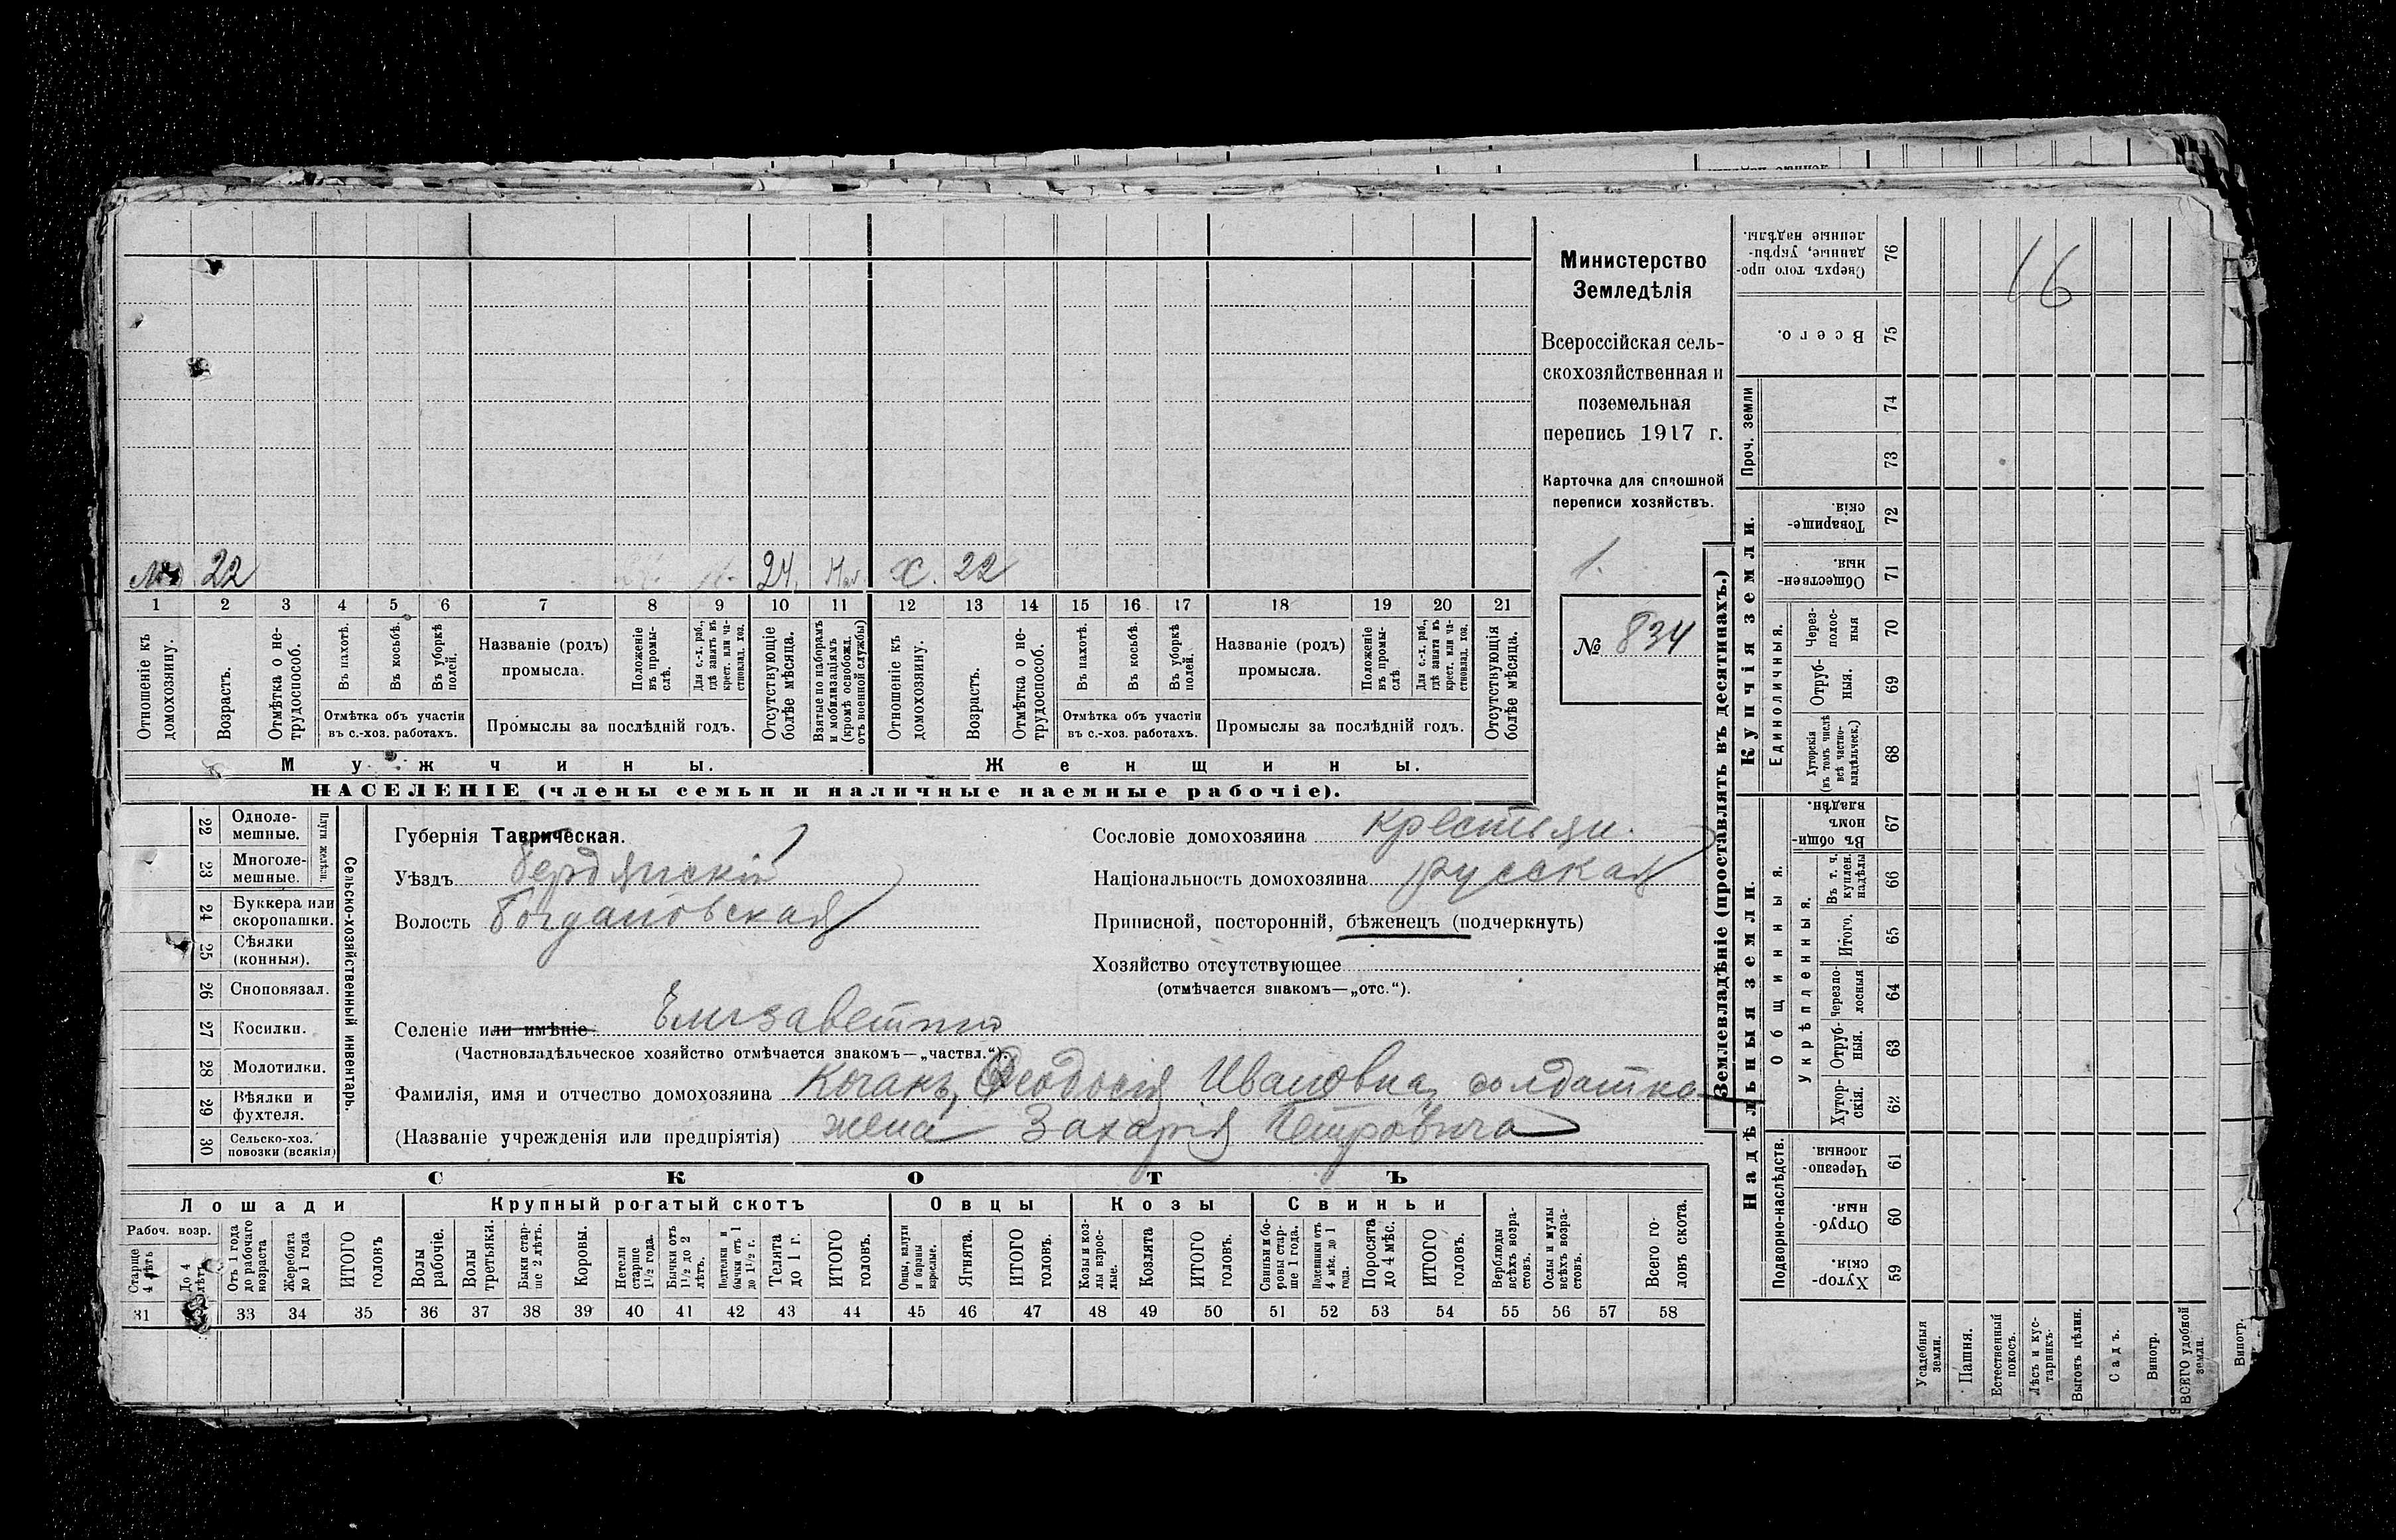 Министерство
Земледѣлія
Всероссійская сель-
скохозяйственная и
поземельная
перепись 1917 г.
Карточка для сплошной
переписи хозяйствъ.
1.
№ 834
22 24. Х. 22
1 2 3 4 5 6 7 8 9 10 11 12 13 14 15 16 17 18 19 20 21
Отношеніе къ домохозяину.
Возрастъ.
Отмѣтка о не-трудоспособ.
Въ пахотѣ.
Въ косьбѣ.
Въ уборкѣ полей.
Отмѣтка объ участіи
въ с.-хоз. работахъ.
Названіе (родъ)
промысла.
Положеніе въ промы-слѣ.
Для с.-х. раб., гдѣ занятъ въ крест. или ча-стновлад. хоз.
Промыслы за послѣдній годъ.
Отсутствующіе болѣе мѣсяца.
Взятые по наборамъ и мобилизаціямъ (кромѣ освобожд. отъ военной службы)
Отношеніе къ домохозяину.
Возрастъ.
Отмѣтка о не-трудоспособ.
Въ пахотѣ.
Въ косьбѣ.
Въ уборкѣ полей.
Отмѣтка объ участіи
въ с.-хоз. работахъ.
Названіе (родъ)
промысла.
Положеніе въ промы-слѣ
Для с.-х. раб., гдѣ занята въ крест. или ча-стновлад. хоз.
Промыслы за послѣдній годъ.
Отсутствующія болѣе мѣсяца.
Мужчины. Женщины.
НАСЕЛЕНІЕ (члены семьи и наличные наемные рабочіе).
22 Одноле-мешные.
23 Многоле-мешные.
Плуги желѣзн.
24 Буккера или скоропашки.
25 Сѣялки (конныя).
26 Сноповязал.
27 Косилки.
28 Молотилки.
29 Вѣялки и фухтеля.
30 Сельско-хоз. повозки (всякія)
Сельско-хозяйственный инвентарь.
Губернія Таврическая.
Уѣздъ Бердянскій
Волость Богдановская
Сословіе домохозяина крестьян.
Національность домохозяина русская
Приписной, посторонній, бѣженецъ (подчеркнуть)
Хозяйство отсутствующее
(отмѣчается знакомъ—„отс.“).
Селеніе или имѣніе
(Частновладѣльческое хозяйство отмѣчается знакомъ—„частвл.“).
Фамилія, имя и отчество домохозяина Коганъ, Феодосія Ивановна, солдатка
(Названіе учрежденія или предпріятія) жена Захарія Петровича
СКОТЪ
Лошади Крупный рогатый скотъ Овцы Козы Свиньи
Рабоч. возр.
Старше 4 лѣтъ
До 4 лѣтъ
Отъ 1 года до рабочаго возраста
Жеребята до 1 года
ИТОГО головъ
Волы рабочіе.
Волы третьяки.
Быки стар-ше 2 лѣтъ.
Коровы.
Нетели старше 1½ года.
Бычки отъ 1½ до 2 лѣтъ.
Подтелки и бычки отъ 1 до 1½ г.
Телята до 1 г.
ИТОГО головъ.
Овцы, валухи и бараны взрослые.
Ягнята.
ИТОГО головъ.
Козы и коз-лы взрос-лые.
Козлята
ИТОГО головъ.
Свиньи и бо-ровы стар-ше 1 года.
Подсвинки отъ 4 мѣс. до 1 года.
Поросята до 4 мѣс.
ИТОГО головъ.
Верблюды всѣхъ возра-стовъ.
Ослы и мулы всѣхъ возра-стовъ.
Всего го-ловъ скота.
31 33 34 35 36 37 38 39 40 41 42 43 44 45 46 47 48 49 50 51 52 53 54 55 56 57 58
Землевладѣніе (проставлять въ десятинахъ.)
16
Сверхъ того про-данные, укрѣп-ленные надѣлы. 76
Всего. 75
Проч. земли 74
73
Купчія земли.
Товарище-скія 72
Обществен-ныя. 71
Единоличныя.
Через-полос-ныя 70
Отруб-ныя. 69
Хуторскія (въ томъ числѣ всѣ частно-владѣльческ.) 68
Надѣльныя земли.
Общинныя.
Въ общин-номъ владѣн. 67
Укрѣпленныя.
Въ т. ч. куплен. надѣлы 66
Итого. 65
Черезпо-лосныя 64
Отруб-ныя. 63
Хутор-скія. 62
Подворно-наслѣдств.
Черезпо-лосныя. 61
Отруб-ныя. 60
Хутор-скія. 59
Усадебныя земли.
Пашня.
Естественный покосъ.
Лѣсъ и кус-тарникъ.
Выгонъ цѣлин.
Садъ.
Виногр.
ВСЕГО удобной земли.
Виногр.